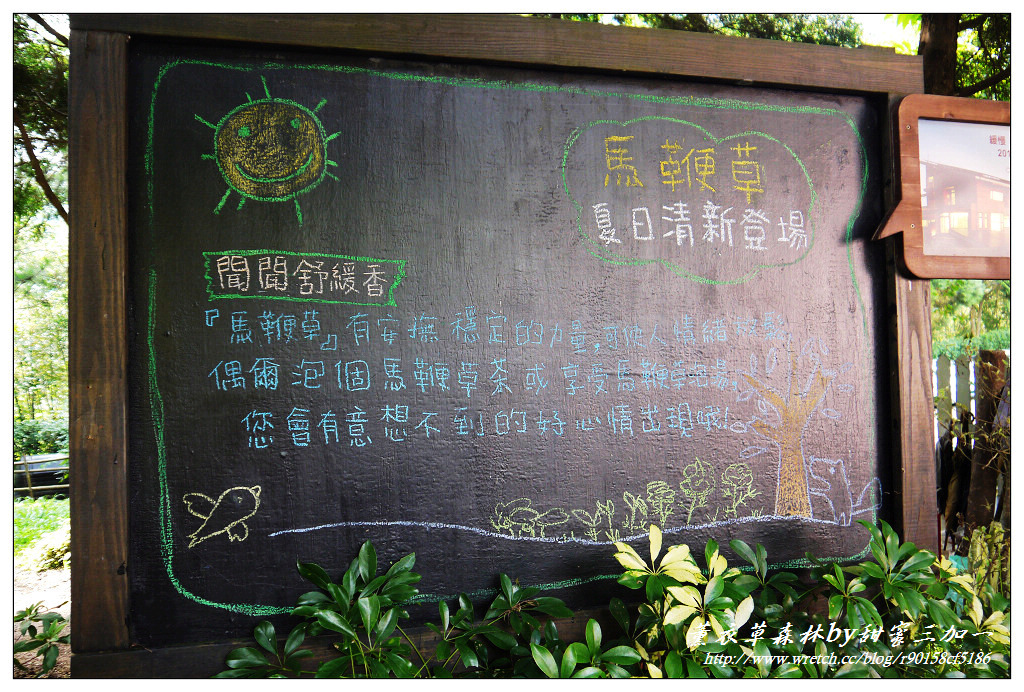 馬鞭草
夏日清新登場
聞聞舒緩香
『馬鞭草』有安撫穩定的力量,可使人情緒
偶爾泡個馬鞭草茶或享受馬鞭草
您會有意想不到的好心情出現哦!
緩慢
201
薰衣草森林by甜蜜三加一
http://www.wretch.cc/blog/r90158cf5186